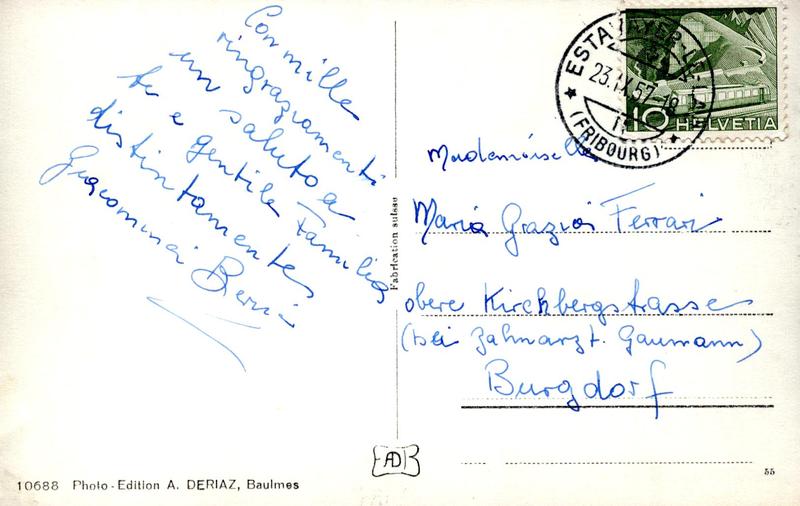 Con mille
ringraziamenti
un saluto a
te e gentile Familia
distintamente
Giacomina
ESTAVAYER-LE-LAC
23.IX.57
(FRIBOURG)
10 HELVETIA
Mademoiselle
Maria Grazia Ferrari
obere Kirchbergstrasse
(bei Zahnarzt. Gaumann)
Burgdorf
Fabrication suisse
AD
10688 Photo-Edition A. DERIAZ, Baulmes
55